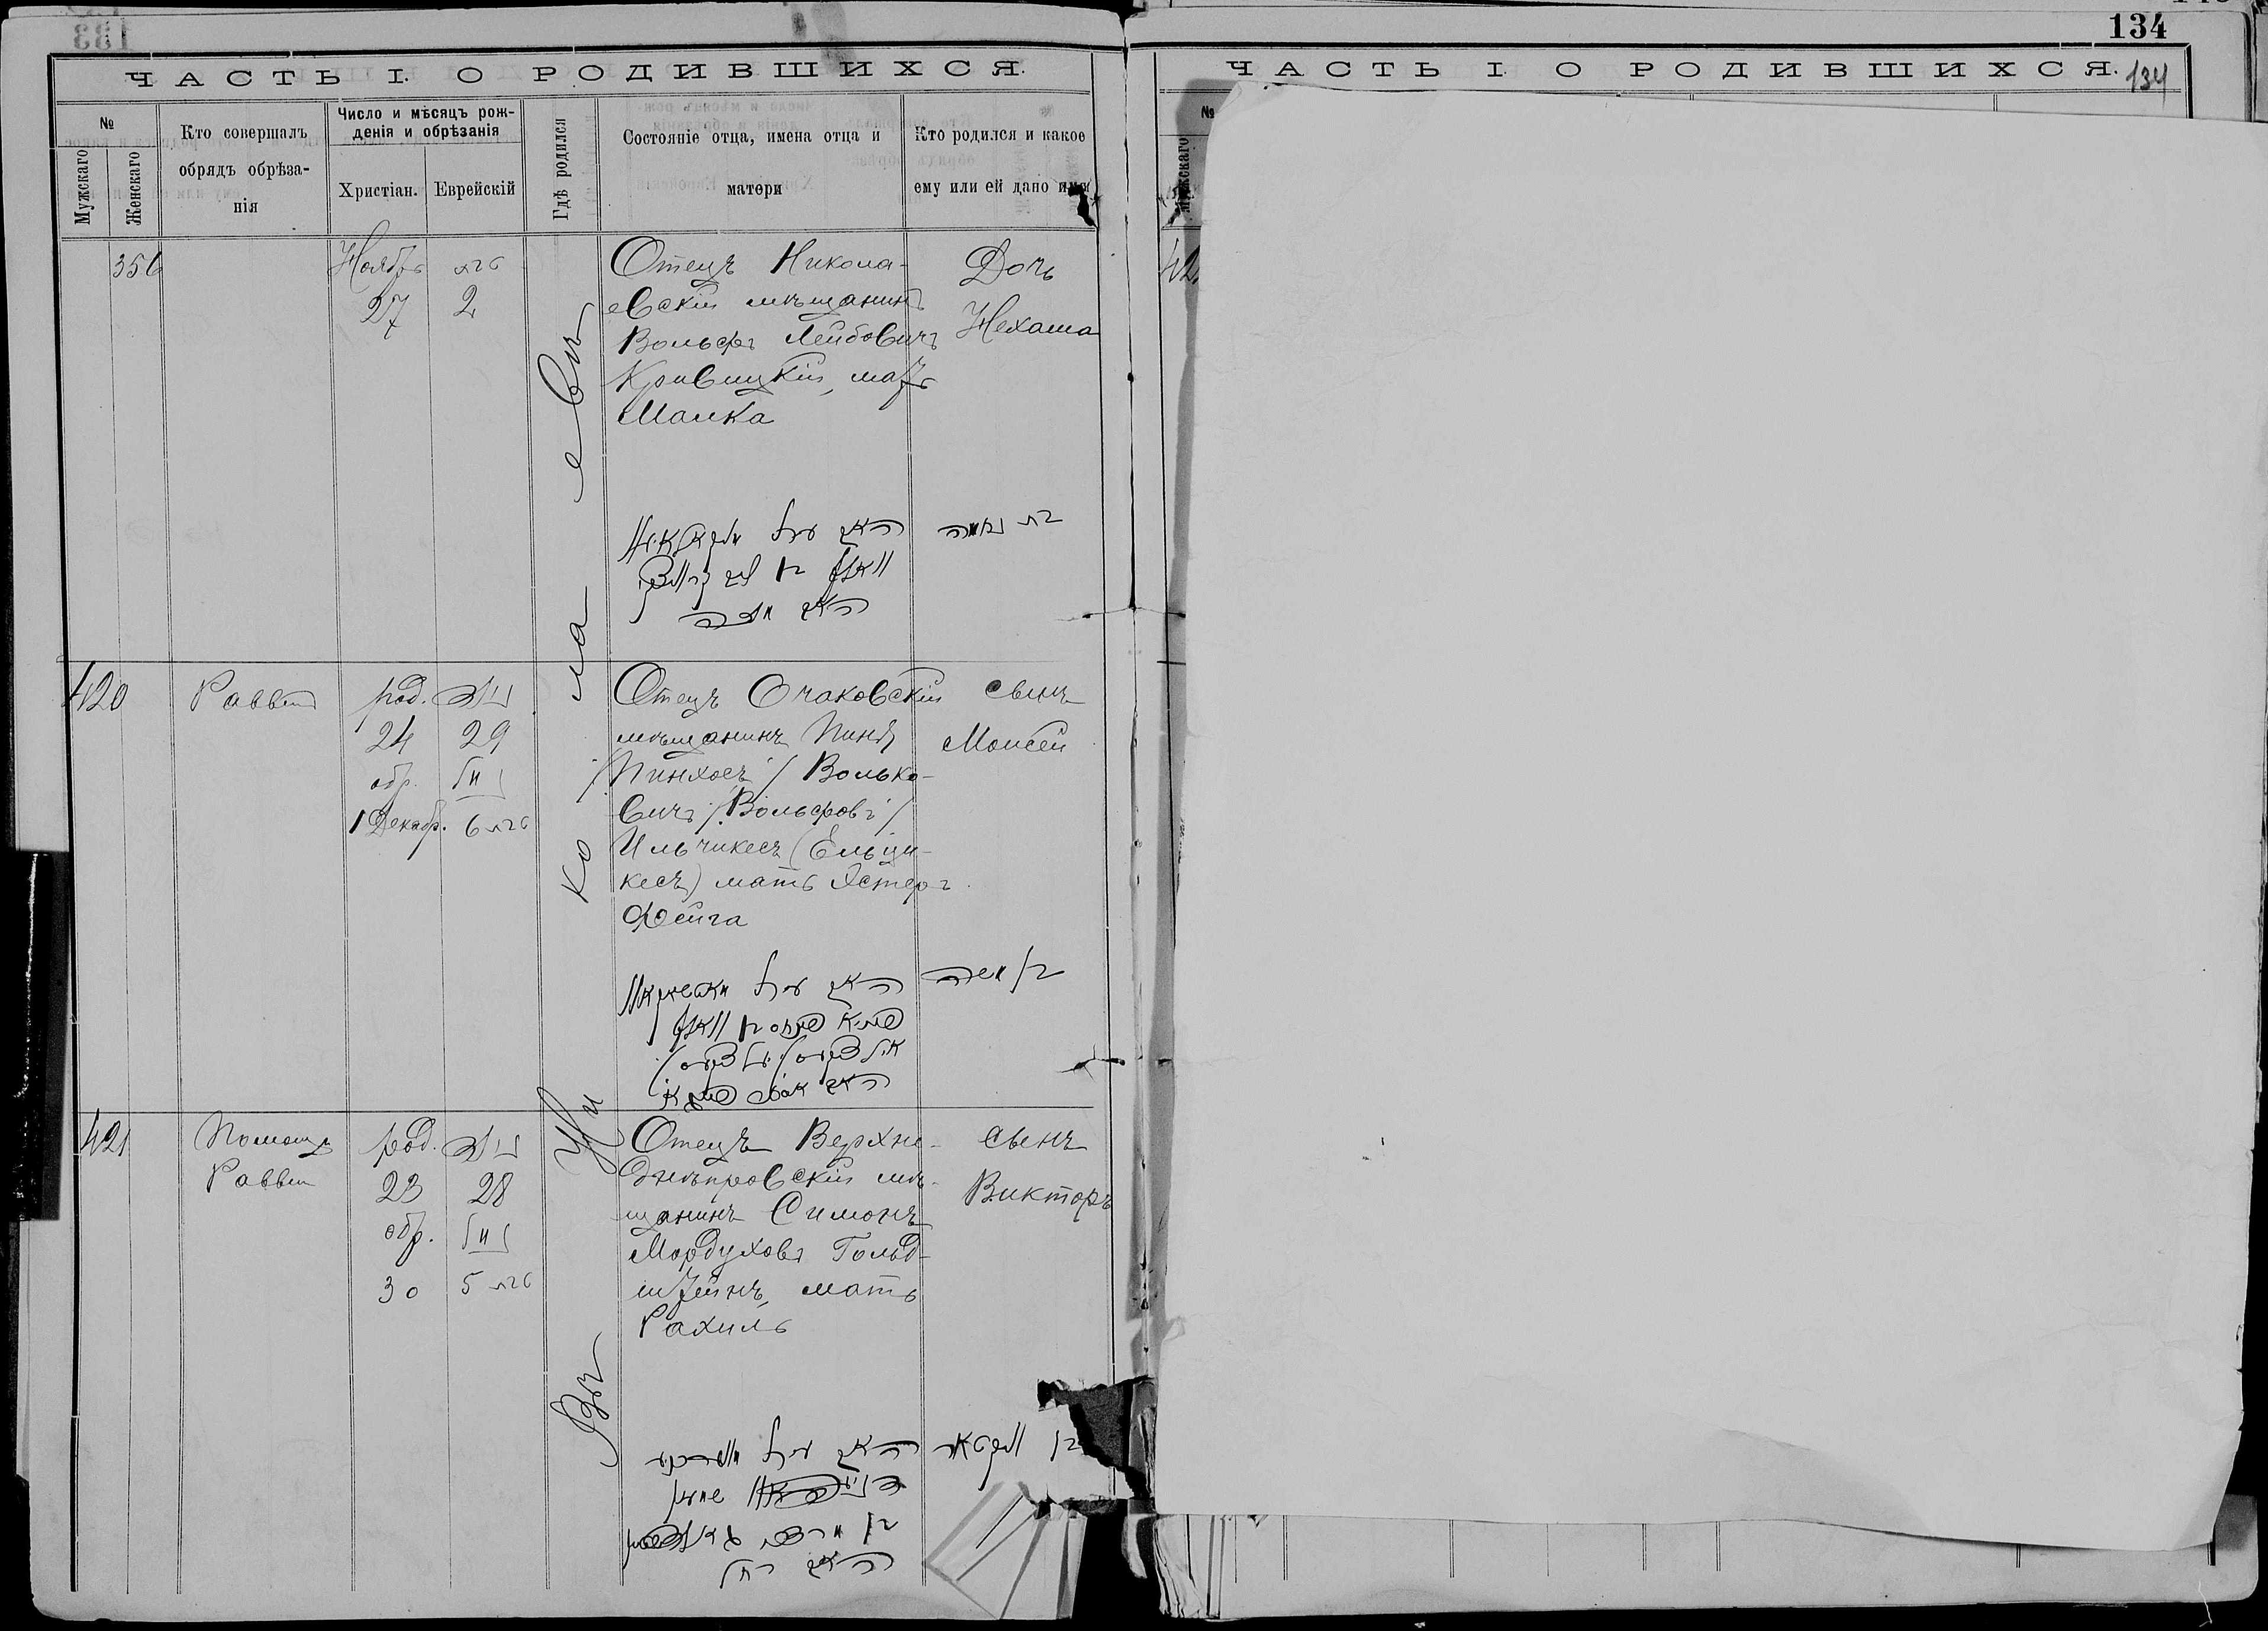 134
ЧАСТЬ I. О РОДИВШИХСЯ.
№
Мужскаго
Женскаго
Кто совершалъ
обрядъ обрѣза-
нія
Число и мѣсяцъ рож-
денія и обрѣзанія
Христіан.
Еврейскій
Гдѣ родился
Состояніе отца, имена отца и
матери
Кто родился и какое
ему или ей дано имя
Въ Николаевѣ
356
Ноябрь
27
2
Отецъ Никола-
евскій мѣщанинъ
Вольфъ Лейбовичъ
Кривицкій, мать
Малка
Дочь
Нехама
האב
האם מלכה
בת נחמה
420
Раввин
род.
24
29
обр.
1 Декабр.
6
Отецъ Очаковскій
мѣщанинъ Пиня
/Пинхосъ/ Волько-
вичъ /Вольфовъ/
Ильчикесъ (Ельци-
кесъ) мать Эстеръ
Фейга
сынъ
Моисей
האב
האם
בן משה
421
Помощ
Раввин
род.
23
28
обр.
30
5
Отецъ Верхне-
днѣпровскій мѣ-
щанинъ Симонъ
Мордуховъ Гольд-
штейнъ, мать
Рахиль
сынъ
Викторъ
האב
שמעון
בן מרדכי
האם רחל
ЧАСТЬ I. О РОДИВШИХСЯ.
134
№
Мужскаго